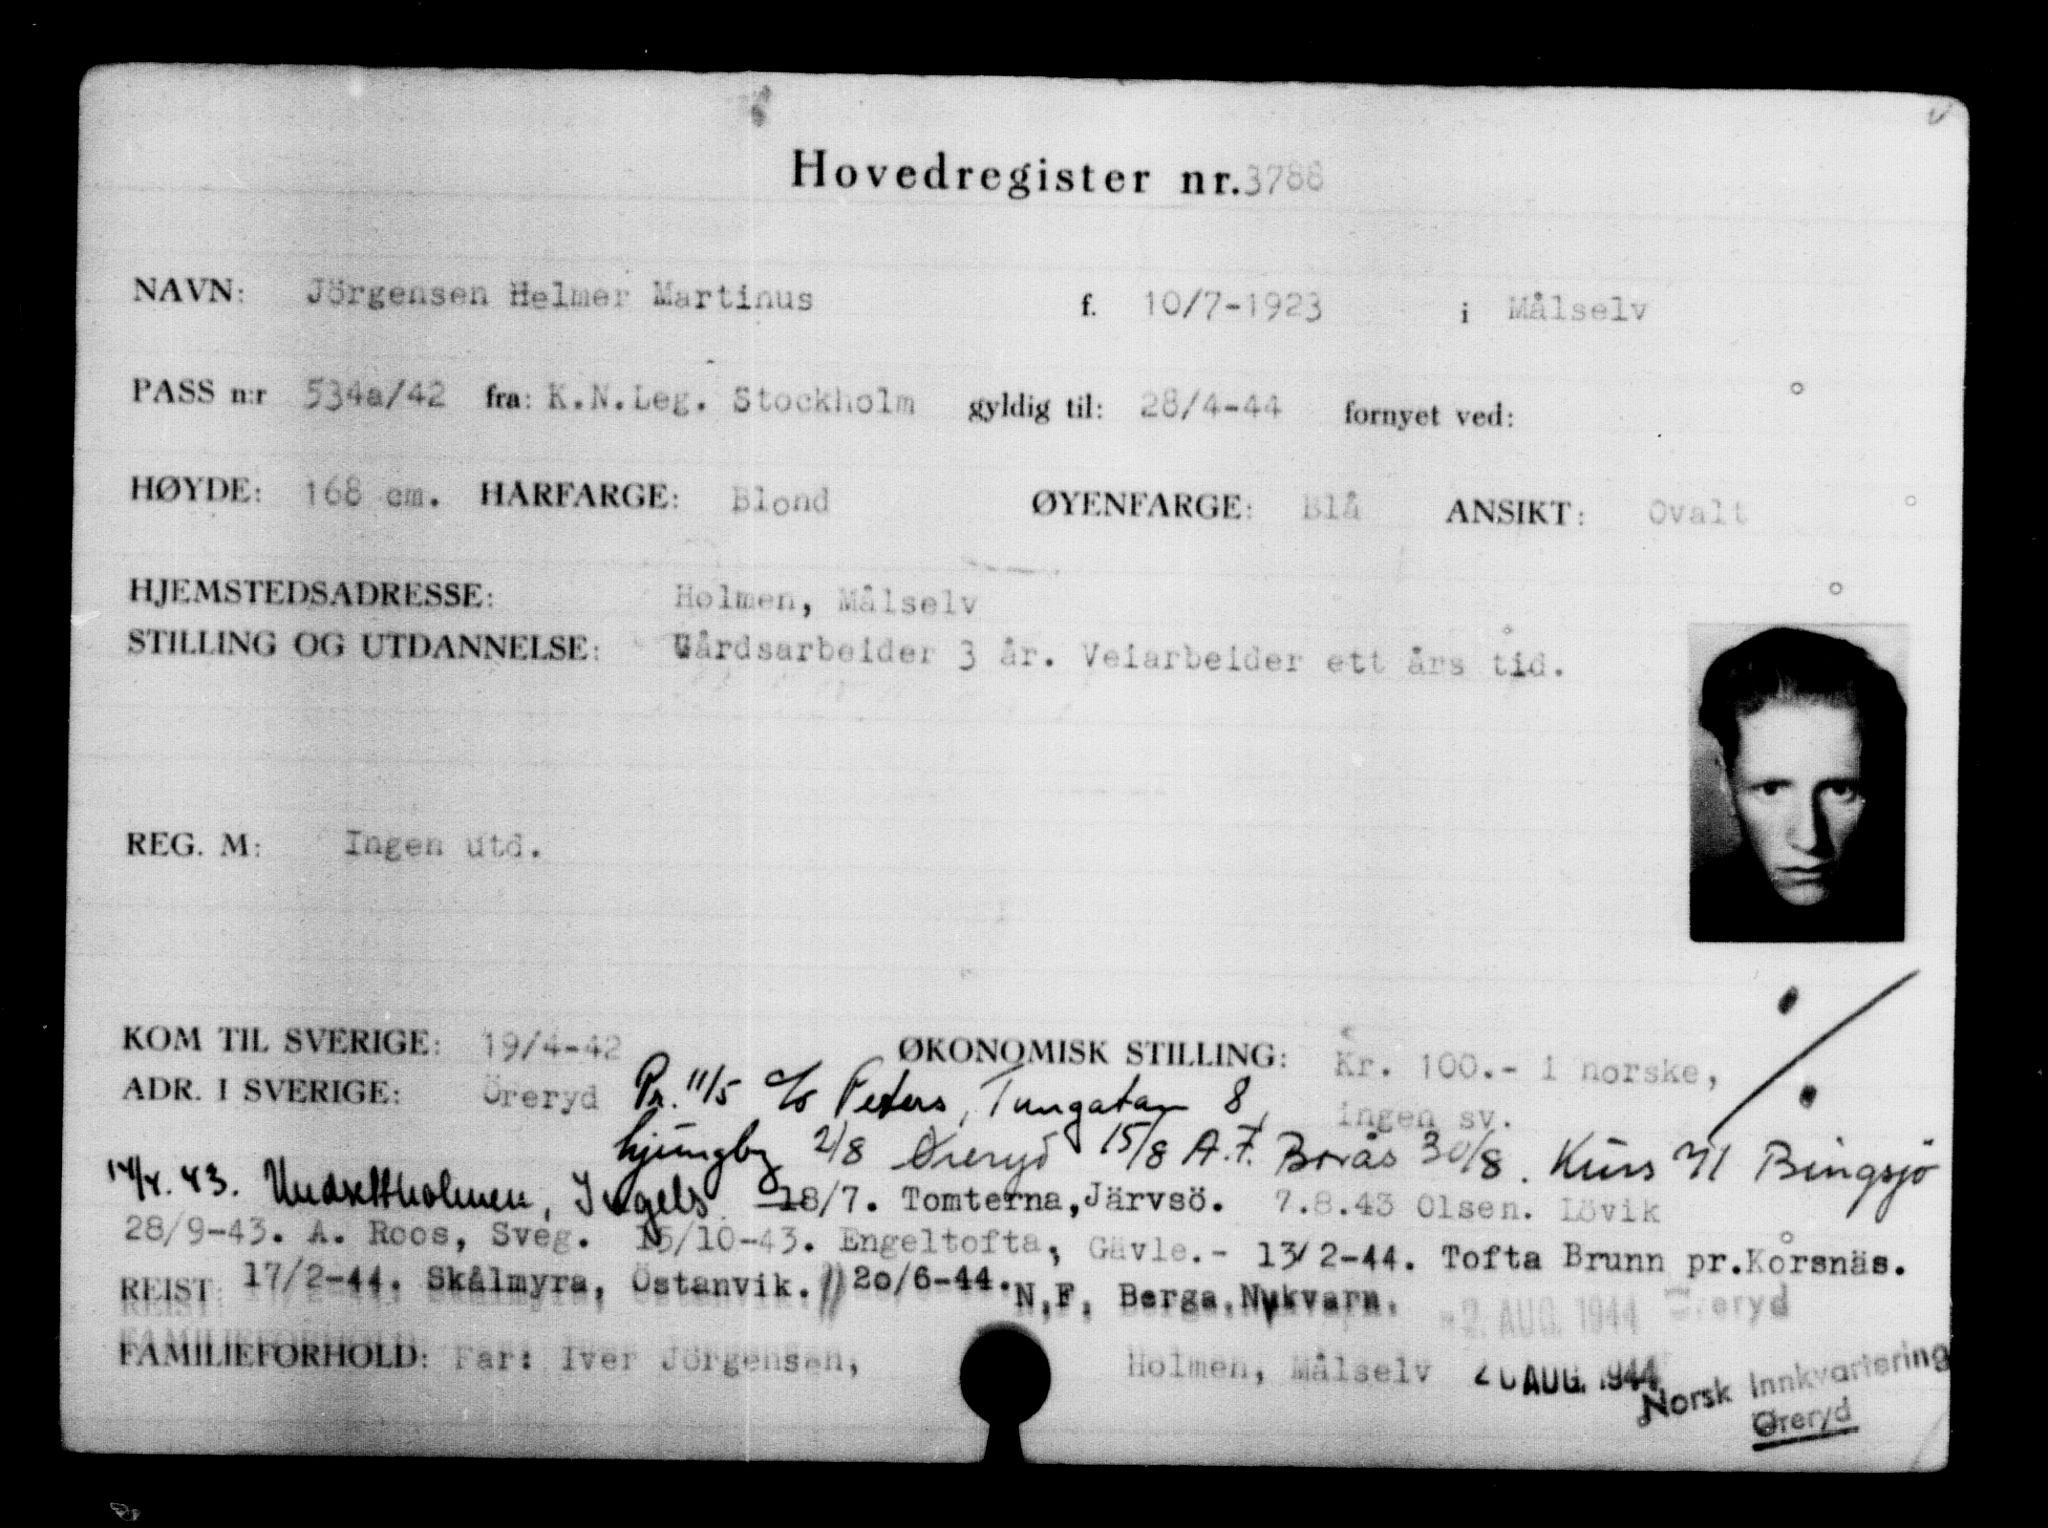 Hovedregister nr. 3788
NAVN: Jörgensen Helmer Martinus f. 10/7-1923 i Målselv
PASS n:r 534a/42 fra: K.N.Leg. Stockholm gyldig til: 28/4-44 fornyet ved:
HØYDE: 168 cm. HÅRFARGE: Blond ØYENFARGE: Blå ANSIKT: Ovalt
HJEMSTEDSADRESSE: Holmen, Målselv
STILLING OG UTDANNELSE: Gårdsarbeider 3 år. Veiarbeider ett års tid.
REG. M: Ingen utd.
KOM TIL SVERIGE: 19/4-42 ØKONOMISK STILLING: Kr. 100.- i norske,
ADR. I SVERIGE: Öreryd Pr. 11/5 c/o Peters, Tungatan 8, ingen sv.
Ljungby 2/8 Øreryd 15/8 A.F. Borås 30/8. Kurs VI Bingsjö
14/4. 43. Undsettholmen, Ingels 18/7. Tomterna, Järvsö. 7.8.43 Olsen. Lövik
28/9-43. A. Roos, Sveg. 15/10-43. Engeltofta, Gävle.- 13/2-44. Tofta Brunn pr. Korsnäs.
REIST: 17/2-44. Skålmyra, Östanvik. // 20/6-44. N.F. Berga, Nykvarn. 2. AUG. 1944 Øreryd
FAMILIEFORHOLD: Far: Iver Jörgensen, Holmen, Målselv AUG. 1944 Norsk Innkvartering
Øreryd